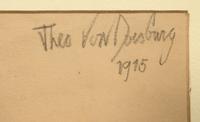 Theo Van Doesburg
1915